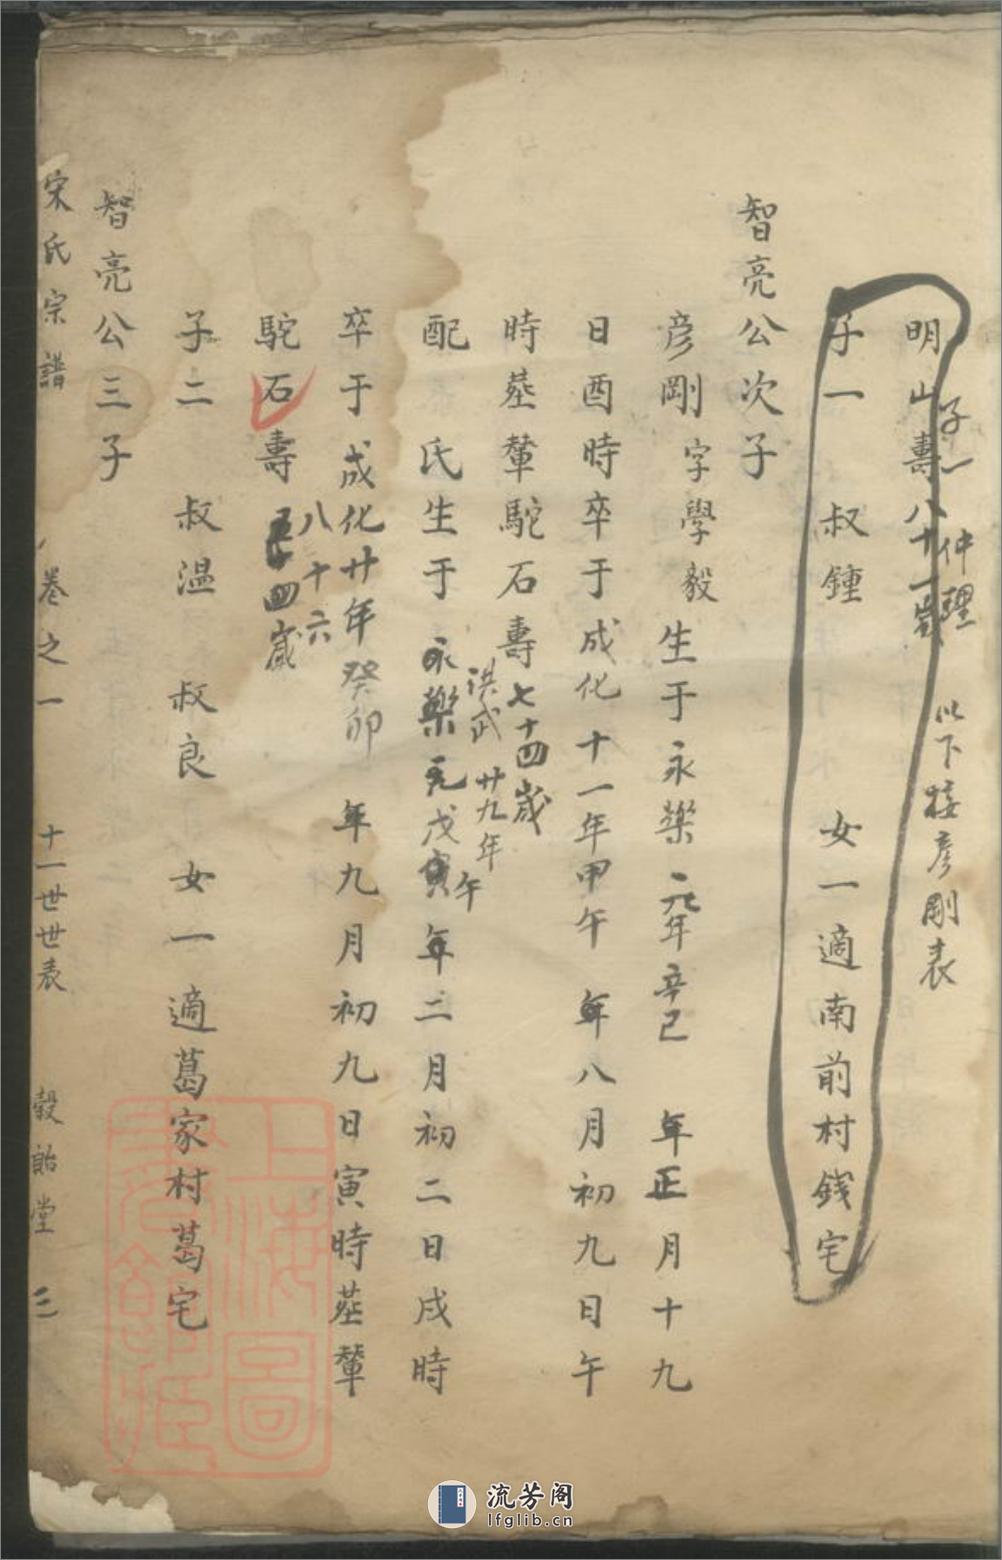 明山壽八十一歲
子一 仲理 以下接彥剛表
子一 叔鍾 女一適南前村錢宅
智亮公次子
彥剛字學毅 生于永樂元年辛巳 年正月十九
日酉時卒于成化十一年甲午 年八月初九日午
時塟輦駝石壽七十四歲
配 氏生于永樂元戊寅年二月初二日戌時
洪武廿九年
午
卒于成化廿年癸卯 年九月初九日寅時塟輦
駝石壽 四歲
八十六
子二 叔温 叔良 女一適葛家村葛宅
智亮公三子
宋氏宗譜 卷之一 十一世世表 穀飴堂 三
上海圖書館藏
流芳阁
lfglib.cn